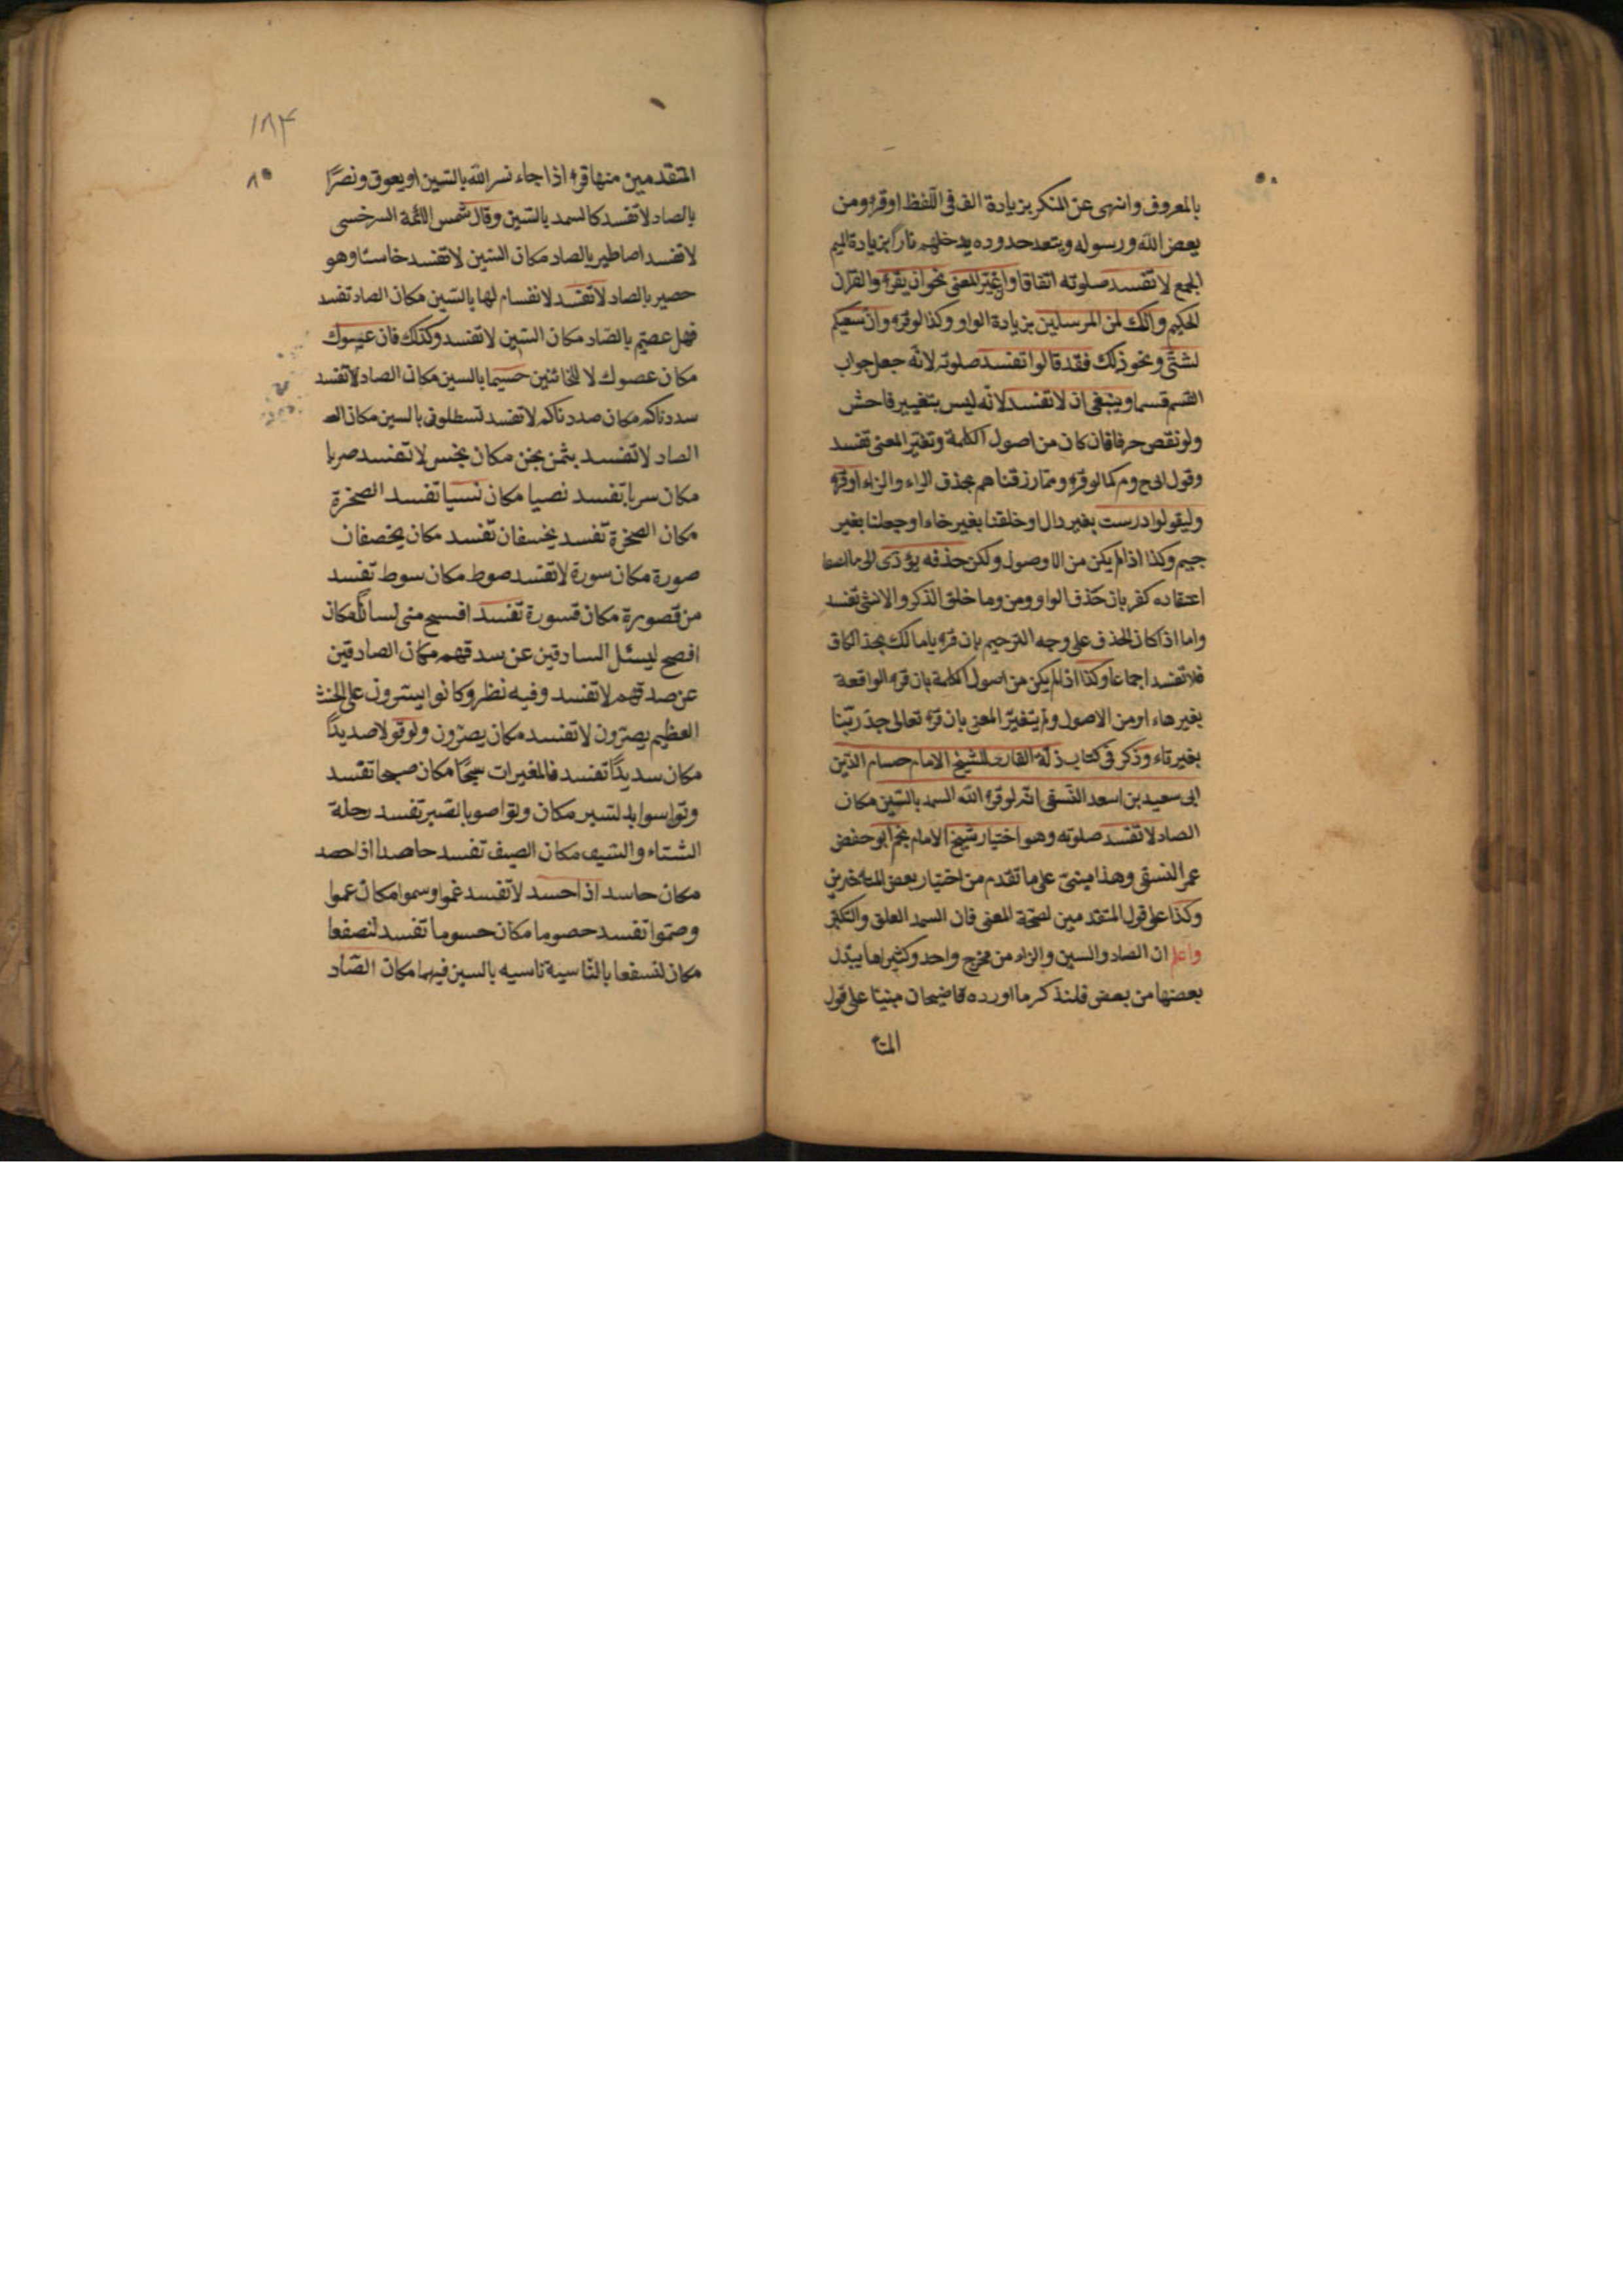 بالمعروف وانهى عن المنكر بزيادة الف فى اللفظ او قرء ومن
يعص الله ورسوله ويتعد حدوده يدخلهم نارا بزيادة الميم
الجمع لا تفسد صلوته اتفاقا وان غير المعنى نحو ان يقرء والقرآن
الحكيم وانك لمن المرسلين بزيادة الواو وكذا لو قرء وان سعيكم
لشتى ونحو ذلك فقد قالوا تفسد صلوته لانه جعل جواب
القسم قسما وينبغى ان لا تفسد لانه ليس بتغيير فاحش
ولو نقص حرفا فان كان من اصول الكلمة وتغير المعنى تفسد
وقول ابى ح وم كما لو قرء ومما رزقناهم بحذف الراء والزاء او قرء
وليقولوا درست بغير دال او خلقنا بغير خاء او جعلنا بغير
جيم وكذا اذا لم يكن من الاصول ولكن حذفه يؤدى الى ما
اعتقاده كفر بان حذف الواو من وما خلق الذكر والانثى تفسد
واما اذا كان الحذف على وجه الترحيم بان قرء يا مالك بحذف الكاف
فلا تفسد اجماعا وكذا اذا لم يكن من اصول الكلمة بان قرء الواقعة
بغير هاء او من الاصول ولم يتغير المعنى بان قرء تعالى جد ربنا
بغير تاء وذكر فى كتاب زلة القارئ للشيخ الامام حسام الدين
ابى سعيد بن اسعد النسفى انه لو قرء الله السمد بالسين مكان
الصاد لا تفسد صلوته وهو اختيار شيخ الامام نجم ابو حفض
عمر النسفى وهذا مبنى على ما تقدم من اختيار بعض المتاخرين
وكذا على قول المتقدمين لصحة المعنى فان السمد العلق والتكبر
واعلم ان الصاد والسين والزاء من مخرج واحد وكثيرا ما يبدل
بعضها من بعض فلنذكر ما اورده قاضيخان مبنيا على قول
المتا
١٨٤
٨٥
المتقدمين منها قرء اذا جاء نسر الله بالسين او يعوق ونصرا
بالصاد لا تفسد كالسمد بالسين وقال شمس الائمة السرخسى
لا تفسد اصاطير بالصاد مكان السين لا تفسد خاسئا وهو
حصير بالصاد لا تفسد لا نفسام لها بالسين مكان الصاد تفسد
فهل عصيتم بالصاد مكان السين لا تفسد وكذلك فان عيسوك
مكان عصوك لا للخائنين خسيما بالسين مكان الصاد لا تفسد
سددناكم مكان صددناكم لا تفسد تسطلون بالسين مكان الصـ
الصاد لا تفسد بثمن بخن مكان بخس لا تفسد صربا
مكان سربا تفسد نصيا مكان نسيا تفسد الصخرة
مكان الصخرة تفسد يخسفان تفسد مكان يخصفان
صورة مكان سورة لا تفسد صوط مكان سوط تفسد
من قصورة مكان قسورة تفسد افسح منى لسانا مكان
افصح ليسئل السادقين عن سدقهم مكان الصادقين
عن صدقهم لا تفسد وفيه نظر وكانوا يسرون على الحنث
العظيم يصرون لا تفسد مكان يصرون وقولوا قولا صديدا
مكان سديدا تفسد فالمغيرات سبحا مكان صبحا تفسد
وتواسوا بالسبر مكان وتواصوا بالصبر تفسد رحلة
الشتاء والسيف مكان الصيف تفسد حاصدا اذا حصد
مكان حاسد اذا حسد لا تفسد عموا وسموا مكان عموا
وصموا تفسد حصوما مكان حسوما تفسد لنصفعا
مكان لنسفعا بالناسية ناسيه بالسين فيهما مكان الصاد